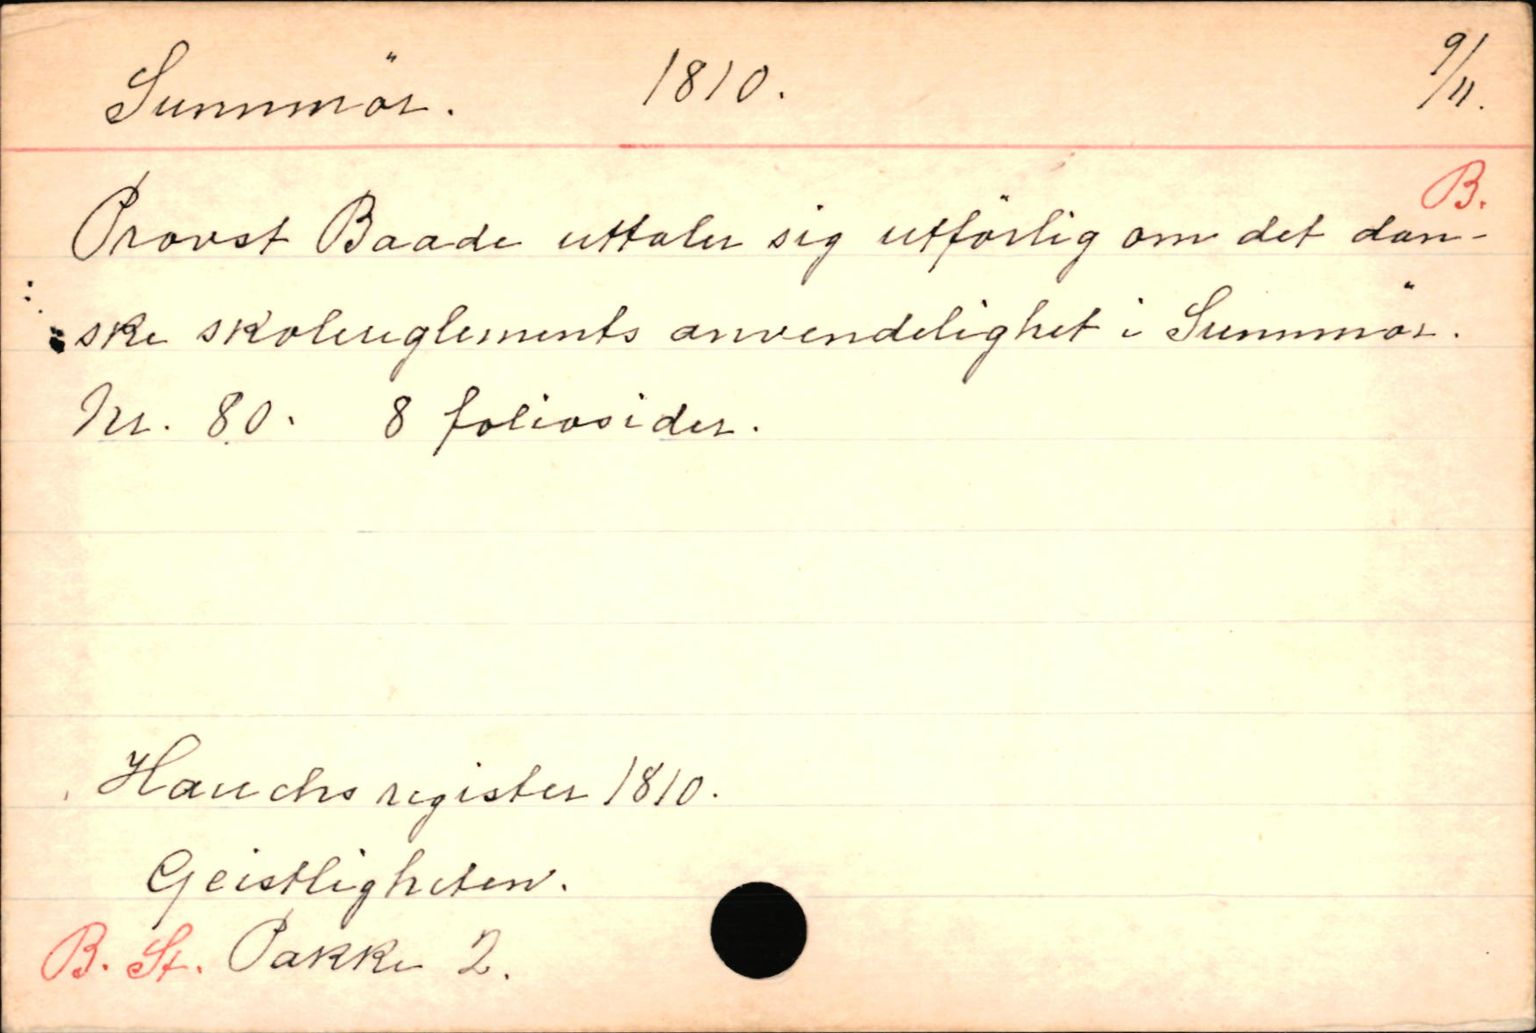 Sunnmör. 1810. 9/11.
B.
Provst Baade uttaler sig utförlig om det dan-
ske skolereglements anvendelighet i Sunnmör.
Nr. 80. 8 foliosider.
Hauchs register 1810.
Geistligheten.
B. St. Pakke 2.